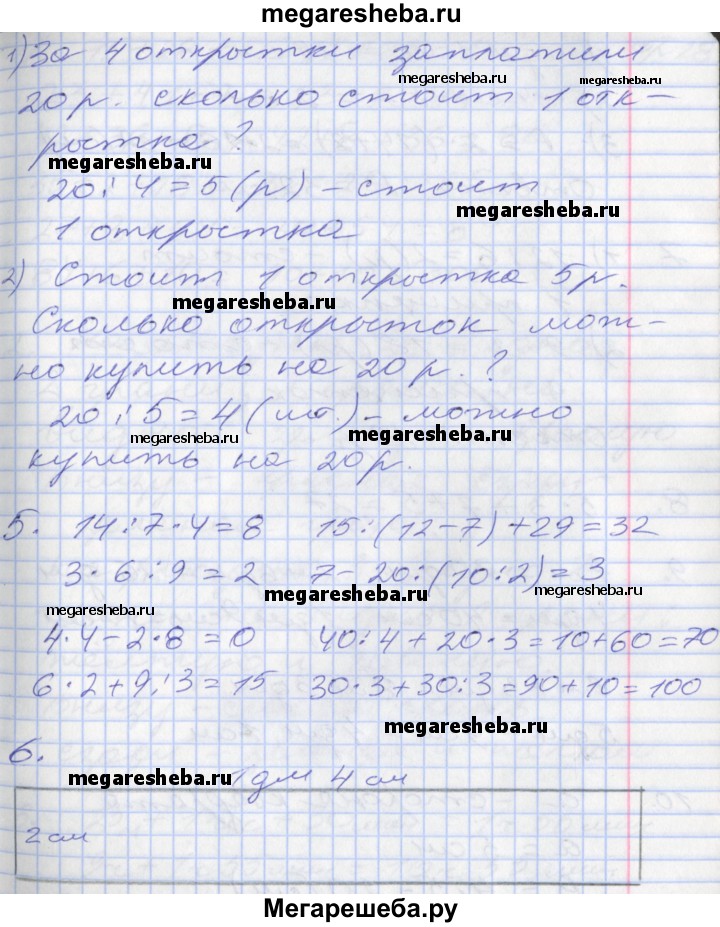 megaresheba.ru
1) За 4 открытки заплатили
megaresheba.ru megaresheba.ru
20 р. сколько стоит 1 отк-
рытка?
megaresheba.ru
20 : 4 = 5 (р) - стоит
megaresheba.ru
1 открытка
2) Стоит 1 открытка 5 р.
megaresheba.ru
Сколько открыток мож-
но купить на 20 р.?
20 : 5 = 4 (шт.) - можно
megaresheba.ru megaresheba.ru
купить на 20 р.
5. 14 : 7 · 4 = 8 15 : (12 - 7) + 29 = 32
3 · 6 : 9 = 2 7 - 20 : (10 : 2) = 3
megaresheba.ru megaresheba.ru megaresheba.ru
4 · 4 - 2 · 8 = 0 40 : 4 + 20 · 3 = 10 + 60 = 70
6 · 2 + 9 : 3 = 15 30 · 3 + 30 : 3 = 90 + 10 = 100
megaresheba.ru
6.
megaresheba.ru 1 дм 4 см
2 см
Мегарешеба.ру